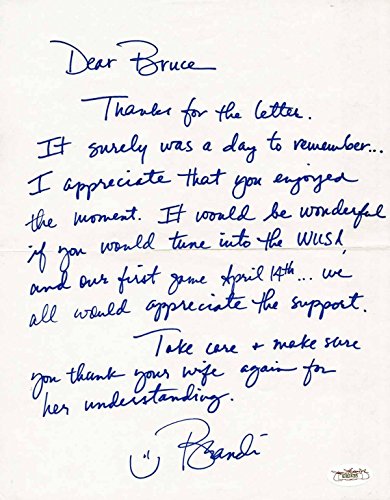 Dear Bruce
Thanks for the letter.
It surely was a day to remember...
I appreciate that you enjoyed
the moment. It would be wonderful
if you would tune into the WUSA,
and our first game April 14th... we
all would appreciate the support.
Take care + make sure
you thank your wife again for
her understanding.
Brandi